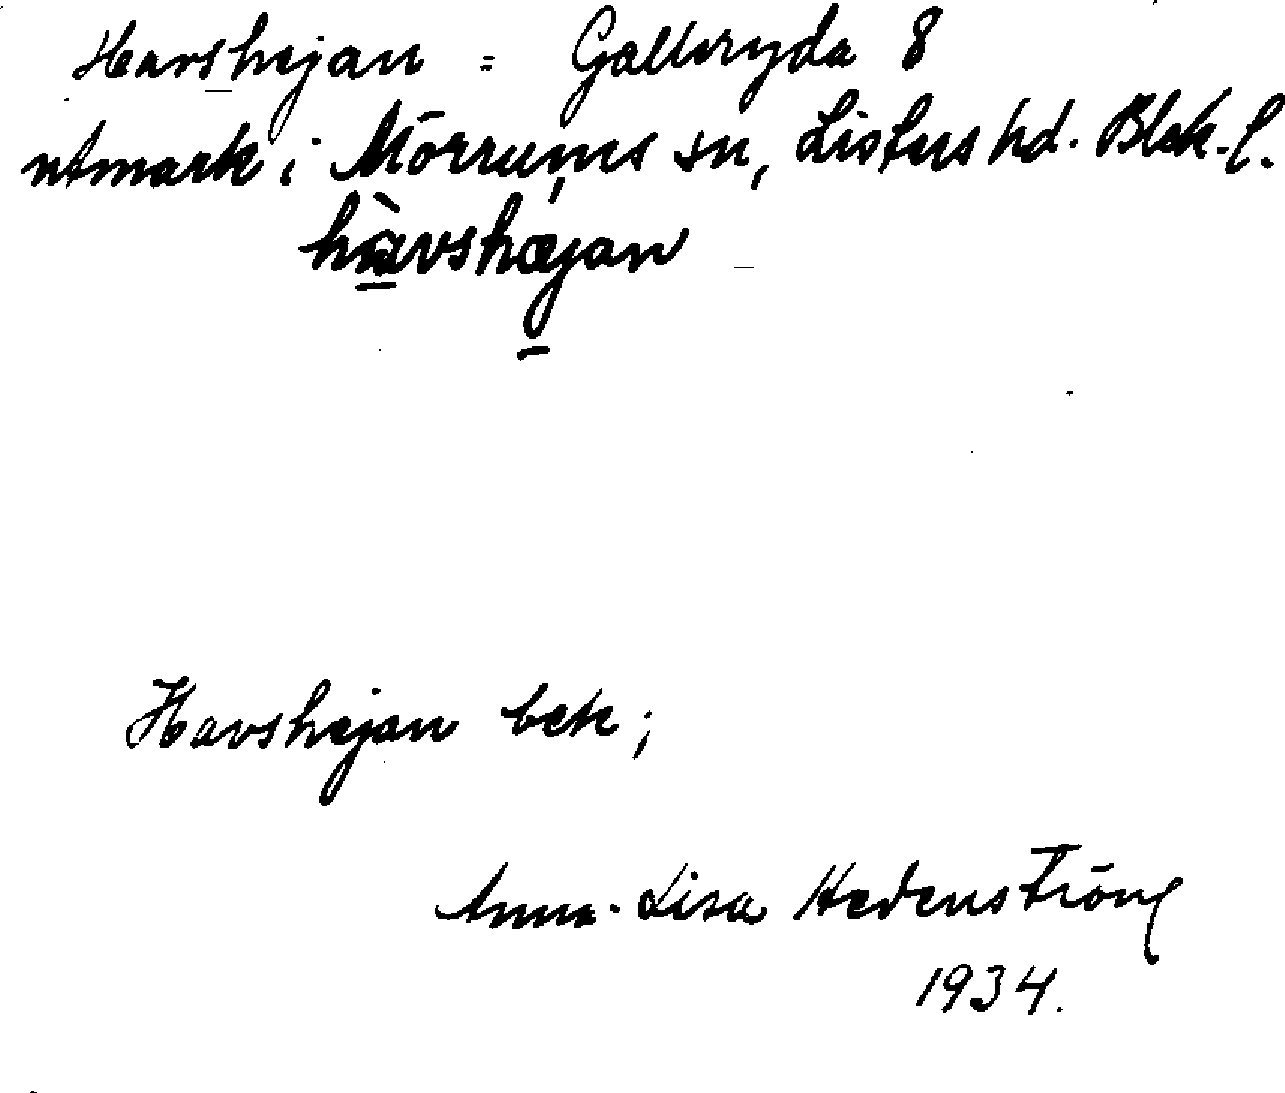 Havshejan = Galleryda 8
utmark i Mörrums sn, Listers hd. Blek. l.
hàvshæjan
Havshejan bek;
Anna-Lisa Hedenström
1934.